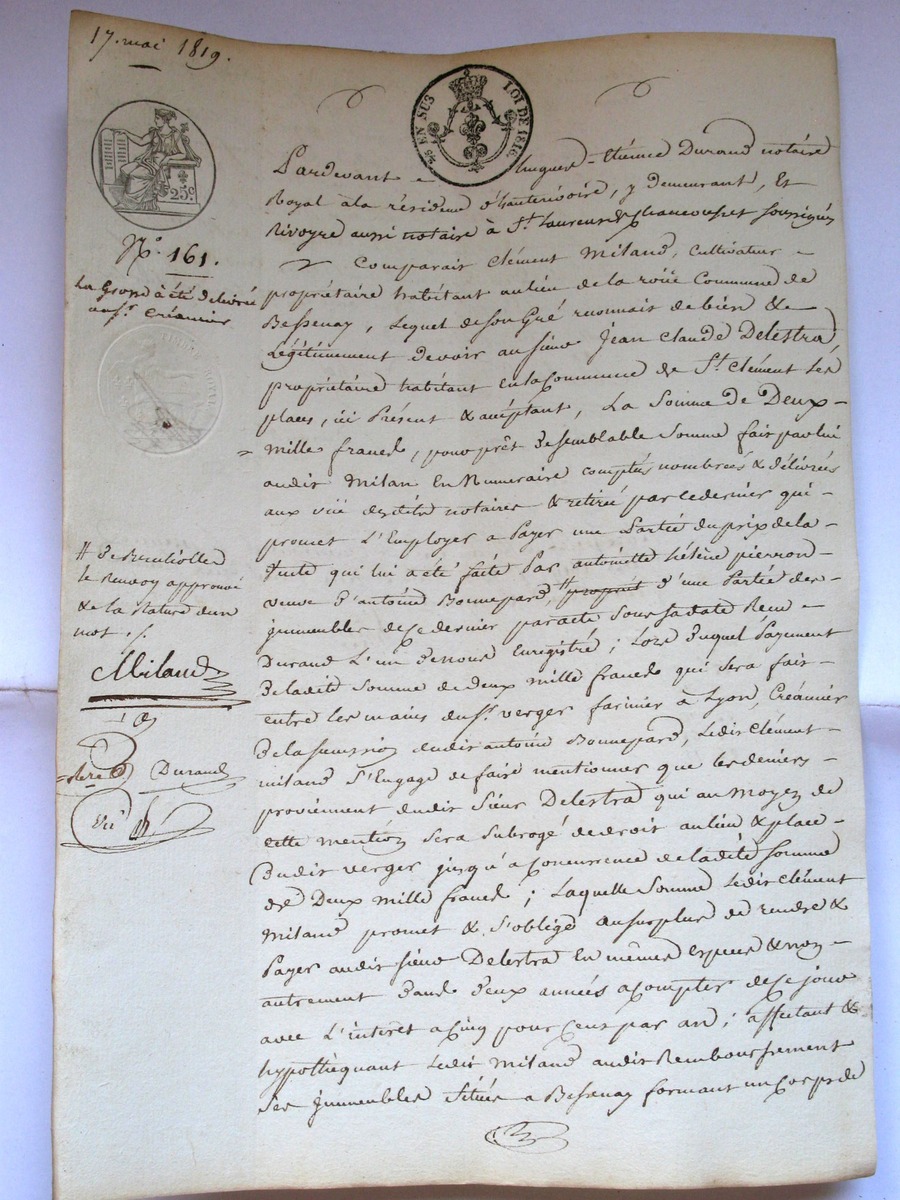 17. mai 1819.
25 EN SUS LOI DE 1816.
25c.
N°. 161.
La Grosse a été délivrée
au sr. Créancier
Pardevant Hugues-Etienne Durand notaire
Royal à la résidence d'hauterivoire, y demeurant, Et
Rivoyre aussi notaire à St. Laurens de chamousset soussignés
Comparait Clément Miland, cultivateur-
propriétaire habitant au lieu de la roüe Commune de
Bessenay, Lequel de son Gré reconnait de bien &
Légitimement devoir au sieur Jean Claude Delestra,
propriétaire habitant en la Commune de St. Clément Les
places, ici Présent & acceptant, La Somme de Deux-
Mille francs, pour prêt de semblable Somme fait par lui
audit Miland En Numeraire comptés nombrées & délivrées
aux vüe desdits notaires & retiré par ce dernier qui-
promet L'Employer a Payer une Partie du prix de la-
Vente qui lui a été faite Par antoinette hélène pierron-
veuve d'antoine Bonnepard, # propriet d'une Partie des-
jmmeubles de ce dernier par acte Sous sa date Reçu-
Durand L'un de nous Enregistré; Lors Duquel Payement
De ladite Somme de deux mille francs qui sera fait-
entre les mains du sr. verger farinier à Lyon, Créancier
De la succession dudit antoine Bonnepard, Ledit Clément-
miland S'Engage de faire mentionner que les deniers-
proviennent dudit Sieur Delestra qui au Moyen de
cette mention Sera Subrogé de droit au lieu & place-
Dudit verger jusqu'a Concurrence de ladite Somme
de Deux Mille francs; Laquelle Somme Ledit Clément
Miland promet & S'oblige au surplus de rendre &
Payer audit Sieur Delestra En mêmes Espèces & non-
autrement Dans Deux années a Compter de Ce jour
avec L'interêt a Cinq pour Cent par an; affectant &
hypothéquant Ledit Miland audit Remboursement
Ses Jmmeubles Situés a Bessenay formant un Corps de
le Renvoy approuvé
& de la Rature d'un
mot ./.
CMiland
Durand